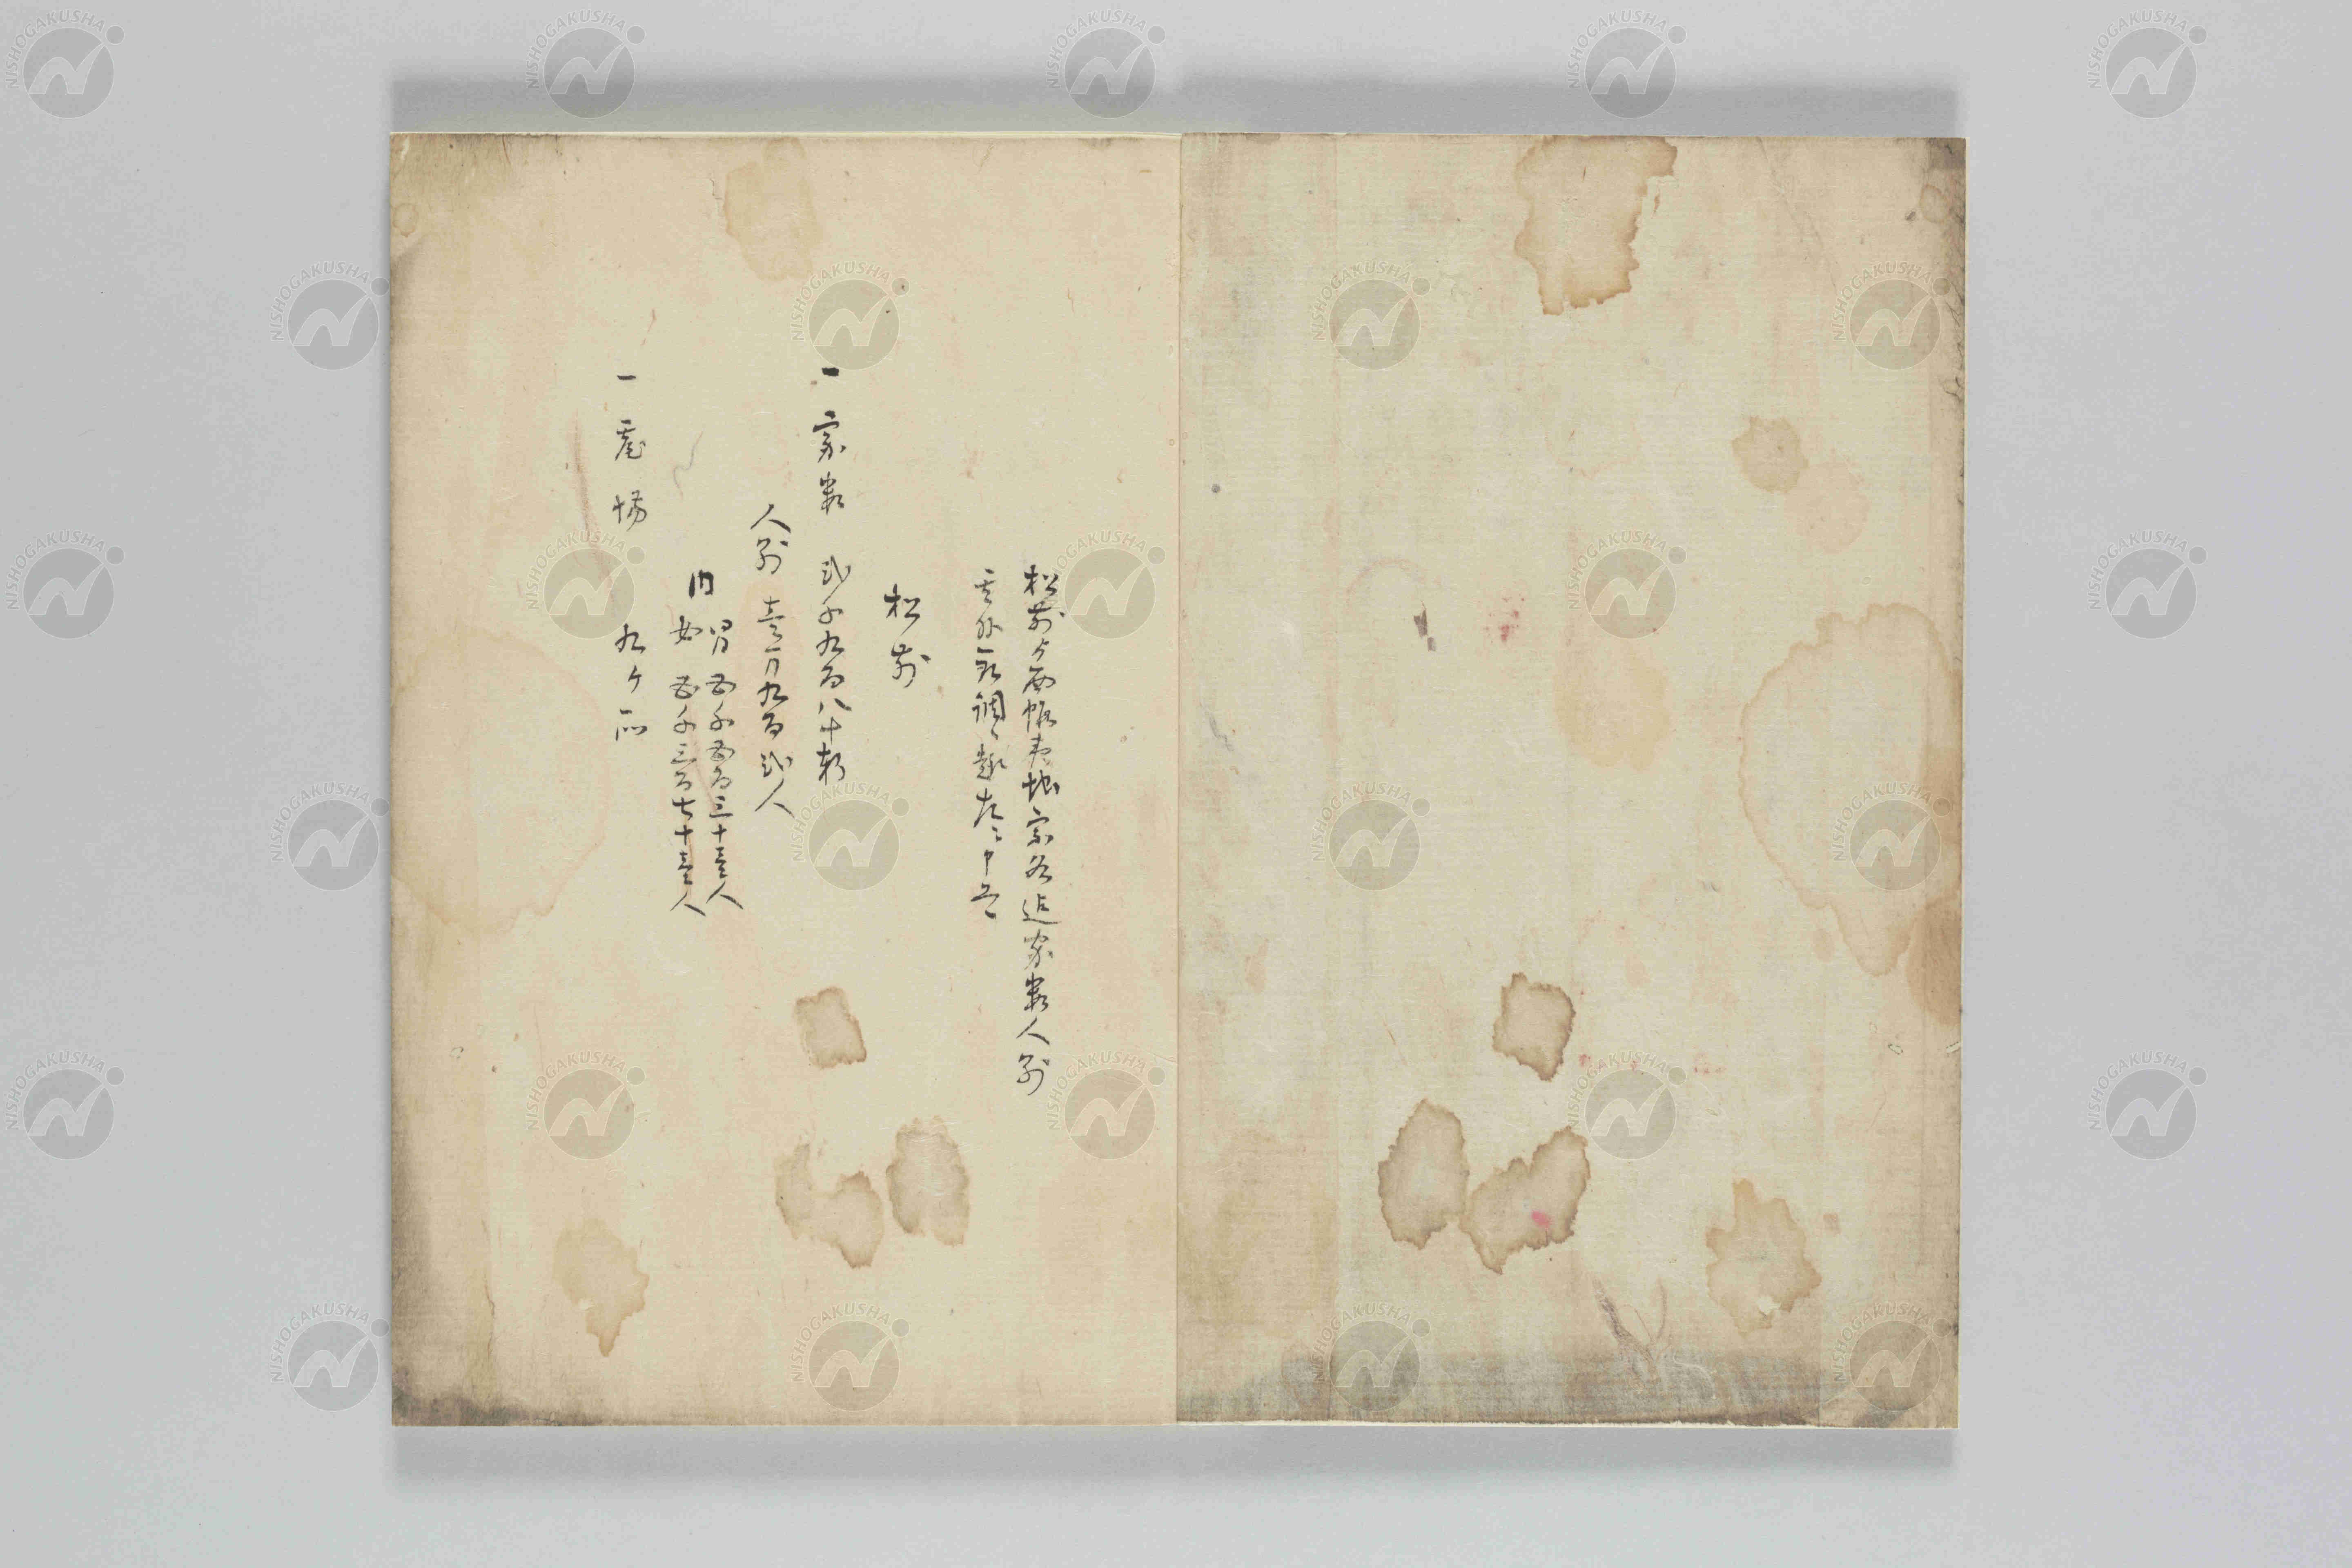 松前ゟ西蝦夷地宗谷迄家数人別
其外取調趣左ニ申上
松前
一 家数 弐千九百八十軒
人別 壹万九百弐人
内 男 五千五百三十壹人
女 五千三百七十壹人
一 *場 九ケ所
NISHOGAKUSHA